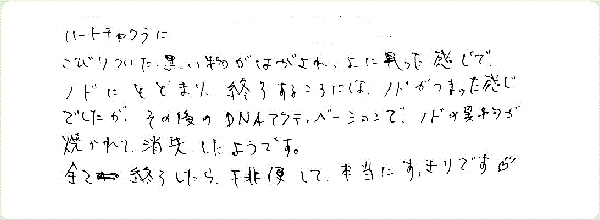 ハートチャクラに
こびりついた黒い物がはがされ、上に昇った感じで、
ノドにとどまり、終了するころには、ノドがつまった感じ
でしたが、その後のDNAアクティベーションで、ノドの異物が
焼かれて消失したようです。
全て終了したら、排便して、本当にすっきりですが